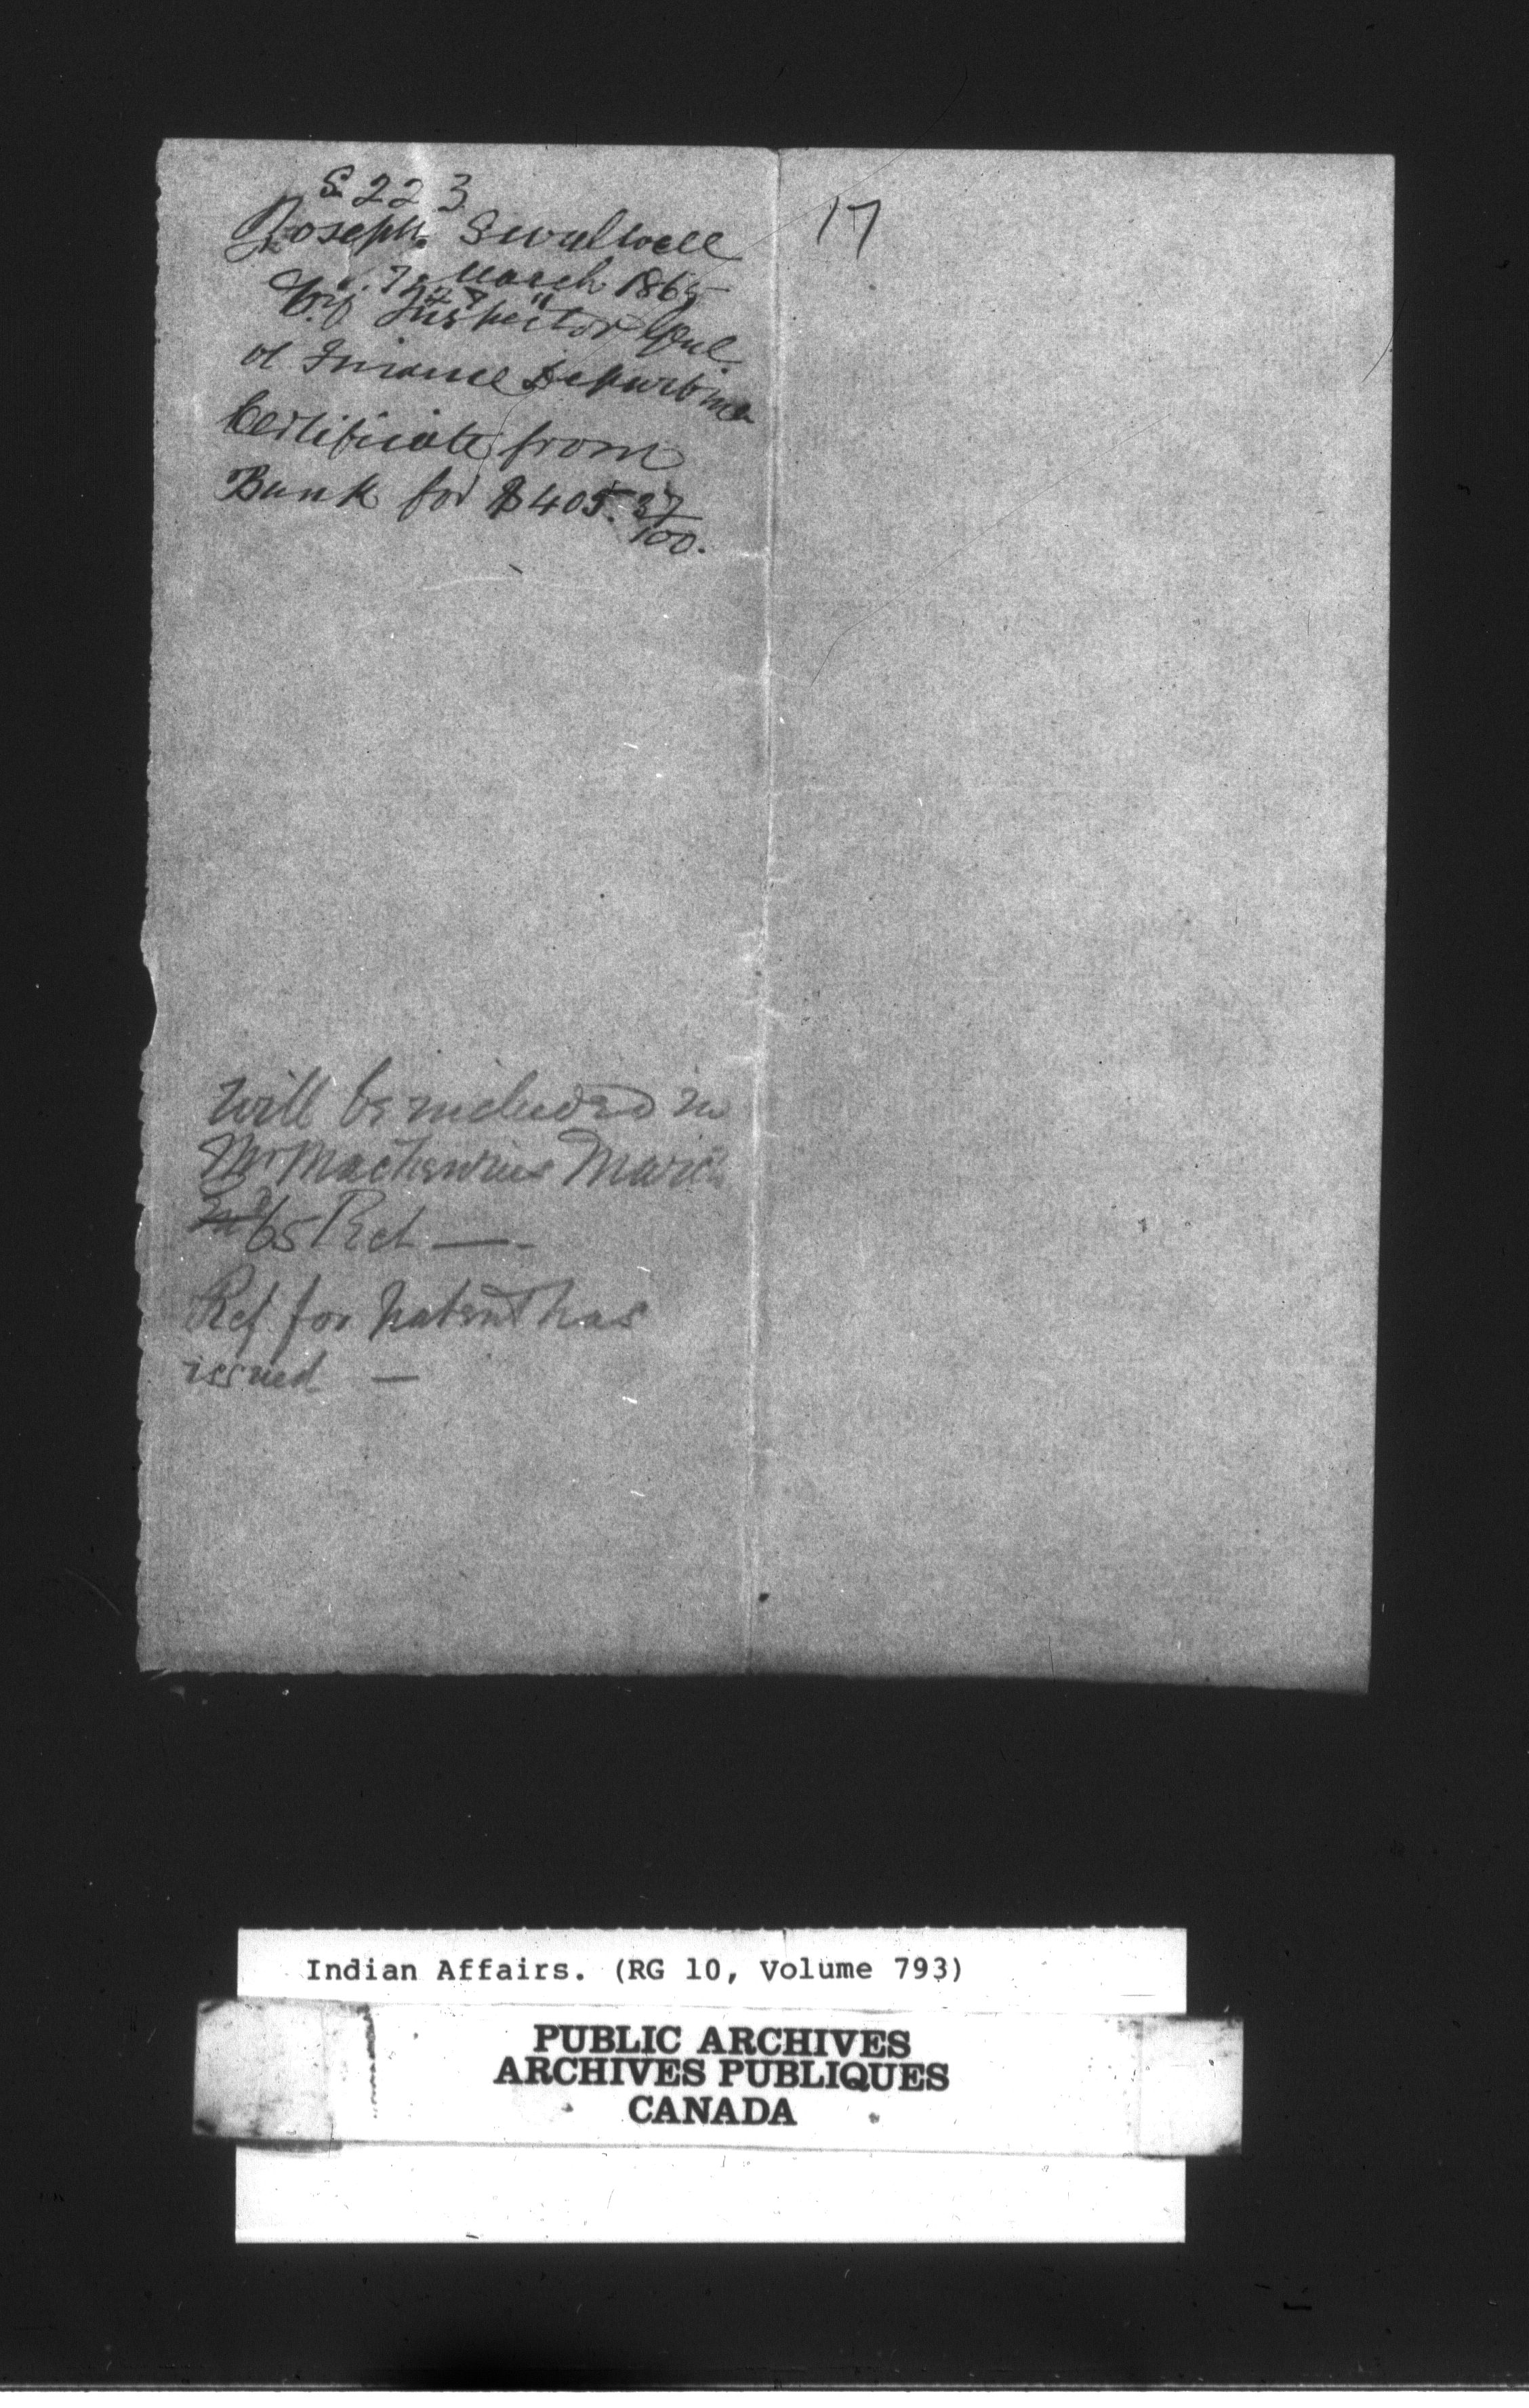 S 223
Joseph Swalwell
7 March 1865
Inspector Genl
of Finance Departmen
Certificate from
Bank for $405.37/100.
17
Will be included in
Mr March
65 Ret —
Ref for Patent has
issued —
Indian Affairs. (RG 10, Volume 793)
PUBLIC ARCHIVES
ARCHIVES PUBLIQUES
CANADA